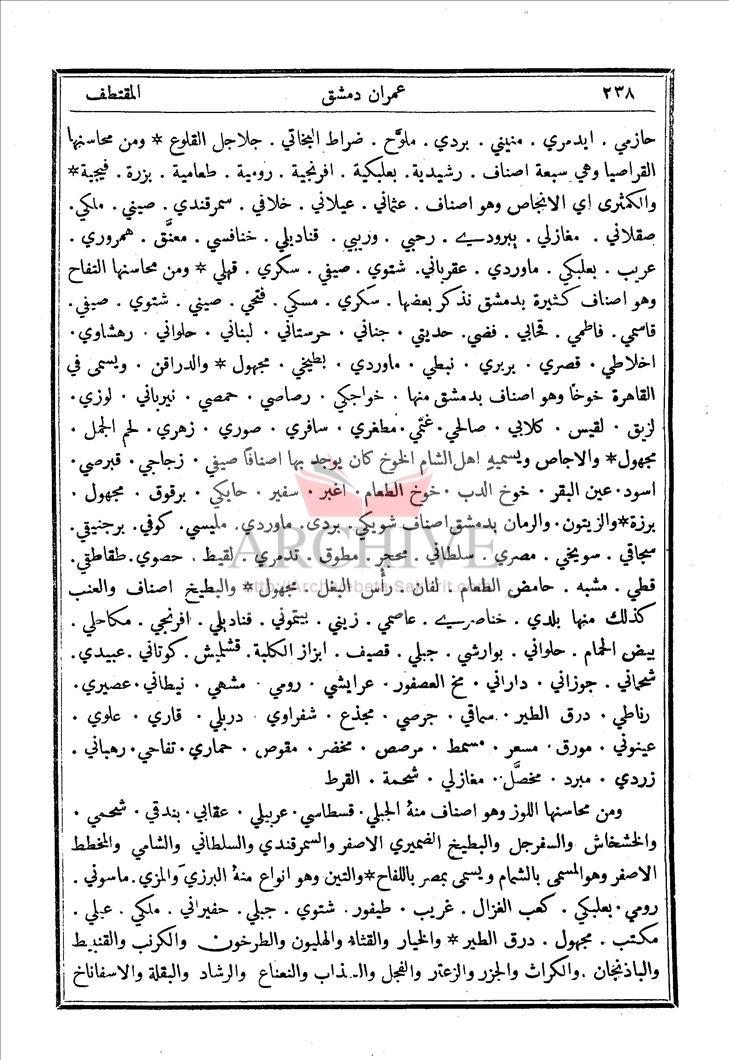 ٢٣٨ عمران دمشق المقتطف
حازمي . ايدمري . منيني . بردي . ملوَّح . ضراط البخاتي . جلاجل القلوع * ومن محاسنها
القراصيا وهي سبعة اصناف . رشيدية . بعلبكية . افرنجية . رومية . طعامية . بزرة . فيجية *
والكمثرى اي الانجاص وهو اصناف . عثماني . عيلاني . خلافي . سمرقندي . صيني . ملكي .
صقلاني . مغازلي . يبرودي . رحبي . وربي . قناديلي . خنافسي . معنَّق . همروري .
عريب . بعلبكي . ماوردي . عقرباني . شتوي . صيفي . سكري . قهلي * ومن محاسنها التفاح
وهو اصناف كثيرة بدمشق نذكر بعضها . سكري . مسكي . فتحي . صيني . شتوي . صيفي .
قاسمي . فاطمي . قحابي . فضي . حديثي . جناني . حرستاني . لبناني . حلواني . رهشاوي .
اخلاطي . قصري . بربري . نبطي . ماوردي . بطيخي . مجهول * والدراقن . ويسمى في
القاهرة خوخًا وهو اصناف بدمشق منها . خواجكي . رصاصي . حمصي . نيرباني . لوزي .
لزيق . لقيس . كلابي . صالحي . غتمي . مظفري . سافري . صوري . زهري . لحم الجمل .
مجهول * والاجاص ويسميه اهل الشام الخوخ كان يوجد بها اصنافًا صيفي . زجاجي . قبرصي .
اسود . عين البقر . خوخ الدب . خوخ الطعام . اغبر . سفير . حايكي . برقوق . مجهول .
برزة * والزيتون . والرمان بدمشق اصناف شويكي . بردى . ماوردي . مليسي . كوفي . برجنيقي .
سجاقي . سويخي . مصري . سلطاني . محجر . مطوق . تدمري . لقيط . حصوي . طقاطقي .
قطي . مشبه . حامض الطعام . لفان . رأس البغل . مجهول * والبطيخ اصناف والعنب
كذلك منها بلدي . خناصري . عاصمي . زيني . بيتموني . قناديلي . افرنجي . مكاحلي .
بيض الحمام . حلواني . بوارشي . جبلي . قصيف . ابزاز الكلبة . قشليش . كوتاني . عبيدي .
شحماني . جوزاني . داراني . مخ العصفور . عرايشي . رومي . مشهي . نيطاني . عصيري .
رناطي . درق الطير . سماقي . جرصي . مجذع . شفراوي . دربلي . قاري . علوي .
عينوني . مورق . مسعر . مسمط . مرصص . مخضر . مقوص . حماري . تفاحي . رهباني .
زردي . مبرد . مخصَّل . مغازلي . شحمة . القرط
ومن محاسنها اللوز وهو اصناف منهُ الجبلي . قسطاسي . عربيلي . عقابي . بندقي . شحمي .
والخشخاش والسفرجل والبطيخ الضميري الاصفر والسمرقندي والسلطاني والشامي والمخطط
الاصفر وهو المسمى بالشمام ويسمى بمصر باللفاح * والتين وهو انواع منهُ البرزي والمزي . ماسوني .
رومي . بعلبكي . كعب الغزال . غريب . طيفور . شتوي . جبلي . حفيراني . ملكي . عبلي .
مكتب . مجهول . درق الطير * والخيار والقثاء والهليون والطرخون والكرنب والقنبيط
والباذنجان . والكراث والجزر والزعتر والفجل والسذاب والنعناع والرشاد والبقلة والاسفاناخ
ARCHIVE